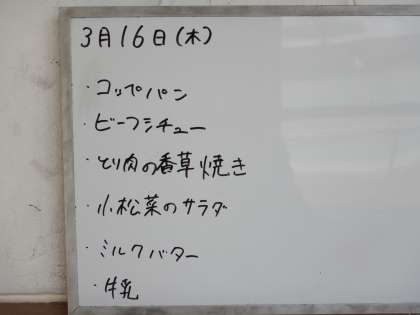 3月16日(木)
・コッペパン
・ビーフシチュー
・とり肉の香草焼き
・小松菜のサラダ
・ミルクバター
・牛乳